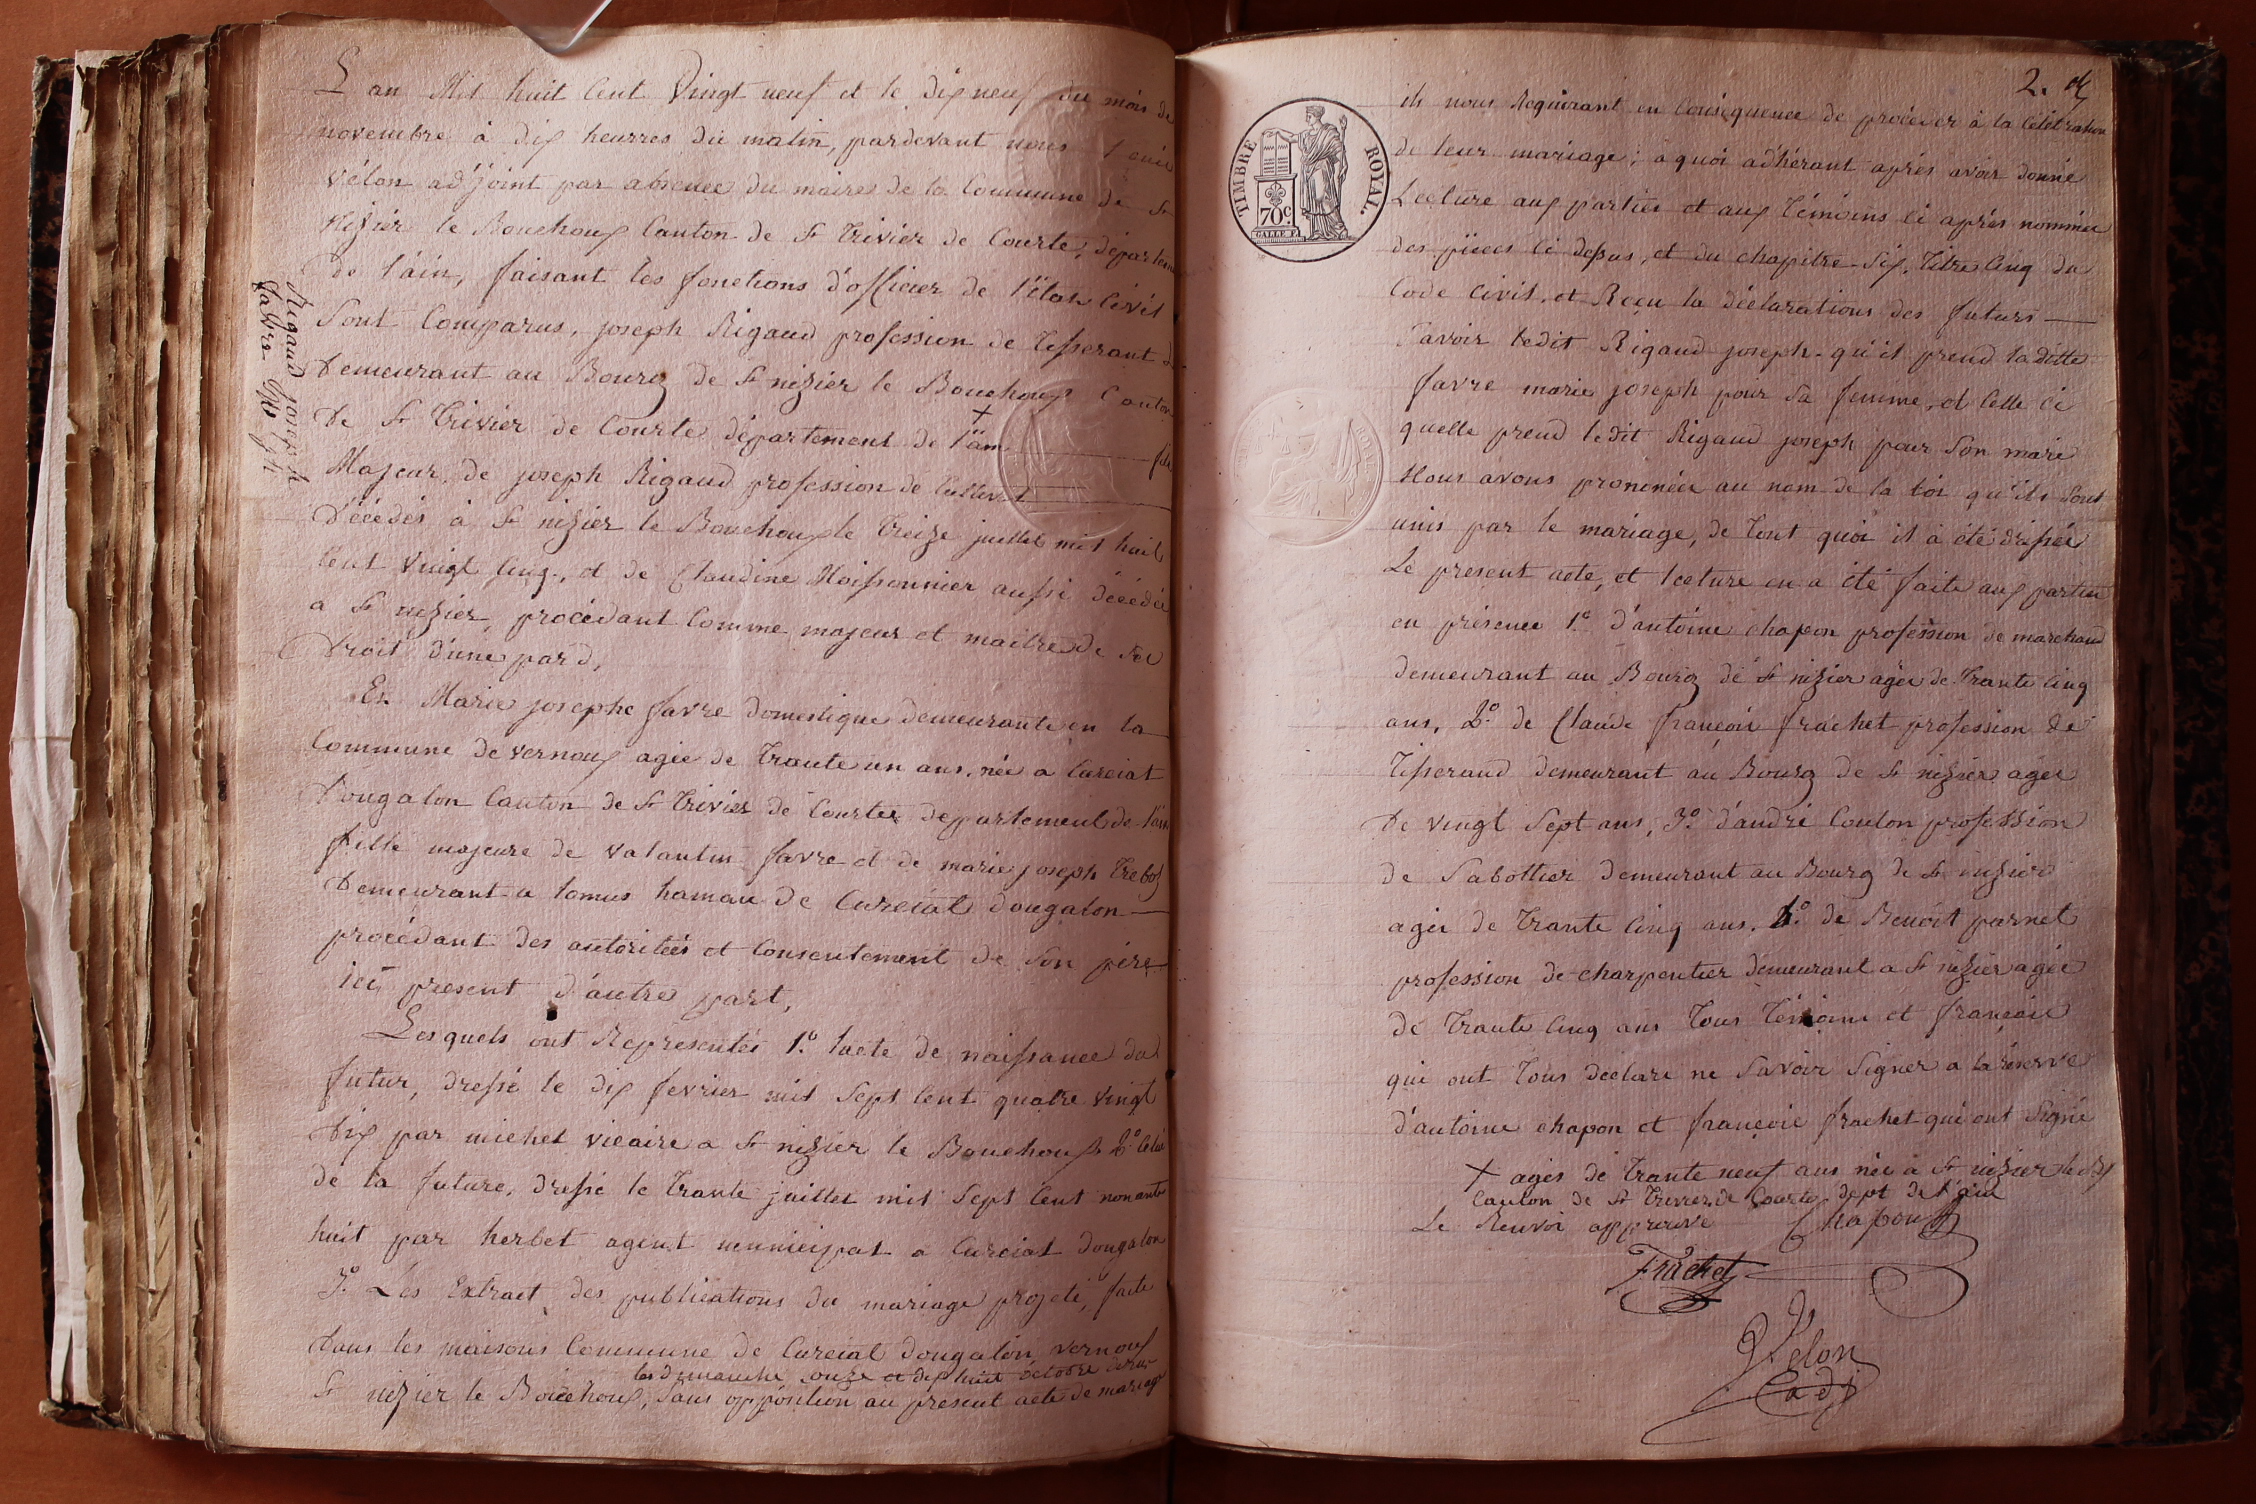 L'an Mil huit Cent Vingt neuf et le dix neuf du mois de
novembre à dix heurres du matin, pardevant nous
vélon adjoint par absence du maire de la Commune de St
Nizier le Bouchoux Canton de St Trivier de Courte, départem
de l'áin, faisant les fonctions d'officier de l'état Civil
Sont Comparus, joseph Rigaud profession de Tisserant
Demeurant au Bourg de St nizier le Bouchoux Canton
De St Trivier de Courte département de l'ain + fils
Majeur, de joseph Rigaud profession de
Décédés à St nizier le Bouchoux le Treize juillet mil huit
Cent Vingt Cinq, et de Claudine Moissonnier aussi décédée
a St nizier, procédant Comme majeur et maitre de ses
Droit d'une pard,
Et Marie josephe favre domestique demeurante en la
Commune de vernoux agée de Trante un ans, née a Curciat
Dongalon Canton de St Trivier de Courtes département de l'ain
fille majeure de valantin favre et de marie joseph Treboz
Demeurant a tomus hamau de Curciat dongalon
procédant des autoritées et Consentement de Son père
ici present d'autre part,
Lesquels ont Représentés 1.º lacte de naissance du
futur, dressé le dix fevrier mil Sept Cent quatre vingt
Dix par michel vicaire a St nizier le Bouchoux 2.º Celui
de la future, dressé le Trante juillet mil Sept Cent nonante
huit par herbet agent municipal a Curciat dongalon
3.º Les Extrait des publications du mariage projeté, faite
Dans les maisons Commune de Curciat dongalon vernoux
les dimanche onze et dix huit octobre dernier
St nizier le Bouchoux, Sans opposition au présent acte de mariage
Rigaud joseph
favre
2.
TIMBRE ROYAL.
70c.
GALLE F.
ils nous Requirant en Conséquence de procéder à la Célébration
de leur mariage; a quoi adhérant après avoir donné
Lecture aux parties et aux Témoins ci après nommées
des pièces ci dessus, et du chapitre Six, Titre Cinq du
Code Civil, et Reçu la déclarations des futurs
Savoir ledit Rigaud joseph qu'il prend la ditte
favre marie joseph pour Sa femme, et Celle ci
quelle prend ledit Rigaud joseph pour Son mari
Nous avons prononcée au nom de la loi qu'ils Sont
unis par le mariage, de Tout quoi il à été dressé
Le present acte, et lecture en a été faite aux parties
en présence 1.º d'antoine chapon profession de marchand
demeurant au Bourg de St nizier agée de Trante Cinq
ans, 2.º de Claude françois frachet profession de
Tisserand demeurant au Bourg de St nizier agée
De vingt Sept ans, 3.º d'andré Coulon profession
de Sabottier demeurant au Bourg de St nizier
agée de Trante Cinq ans. 4.º de Benoit parnet
profession de charpentier demeurant a St nizier agée
de Trante Cinq ans Tous Témoins et françois
qui ont Tous déclaré ne Savoir Signer a la réserve
d'antoine chapon et françois frachet qui ont Signé
+ agés de Trante neuf ans née à St nizier le Bx
Canton de St Trivier de Courtes dept de l'ain
Le Renvoi approuvé Chapon
Frachet
Velon
adj